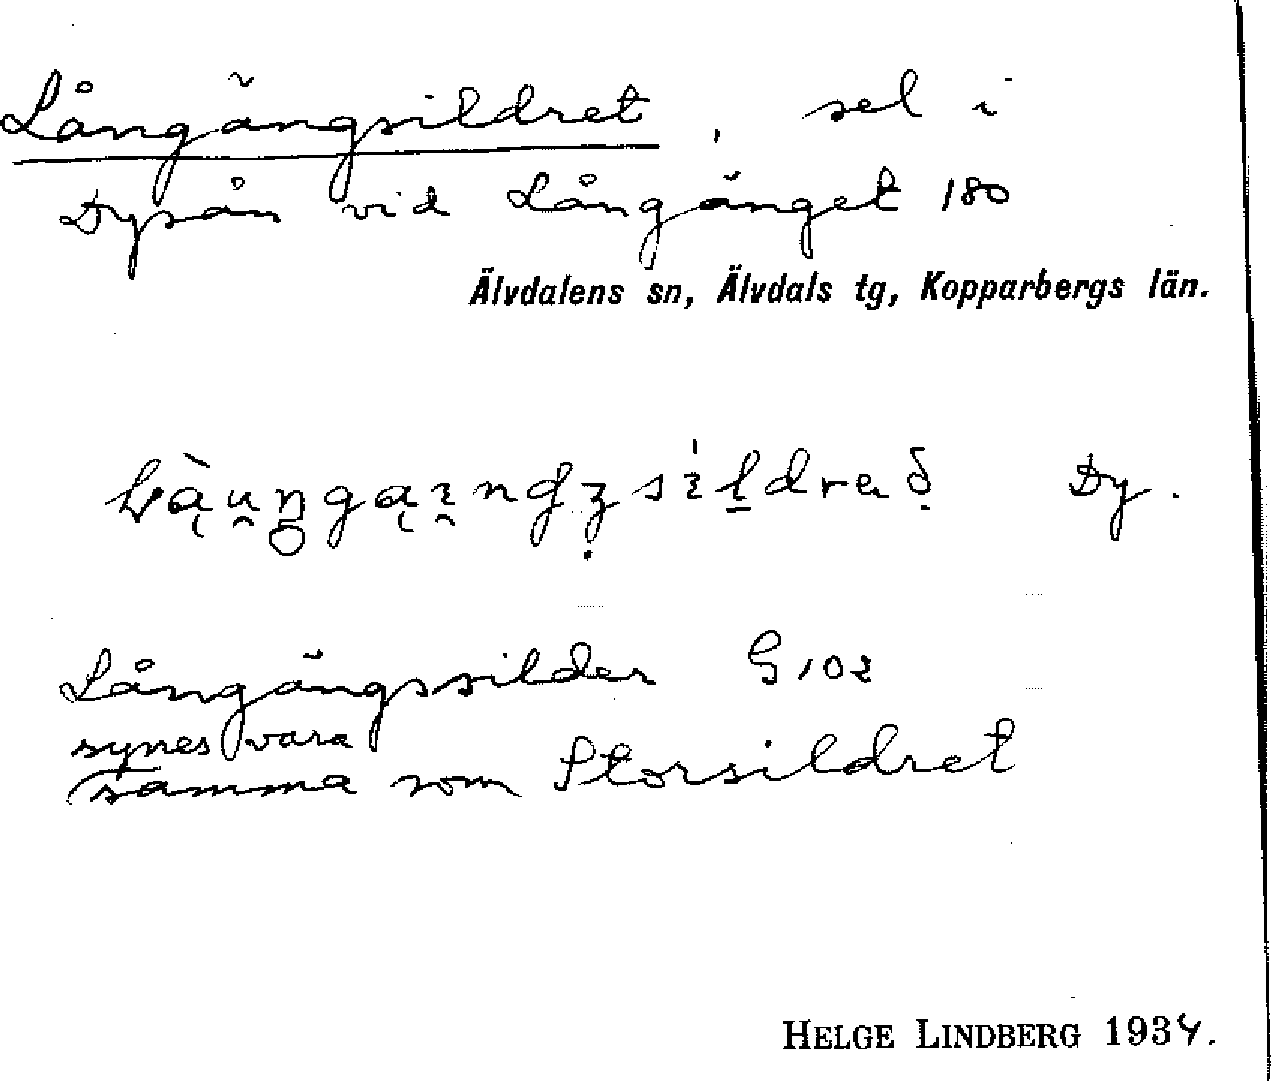 Långängsildret, sel i
Dysån vid Långänget 180
Älvdalens sn, Älvdals tg, Kopparbergs län.
Dy.
Långängssilder G 102
synes vara
samma som Storsildret
HELGE LINDBERG 1934.